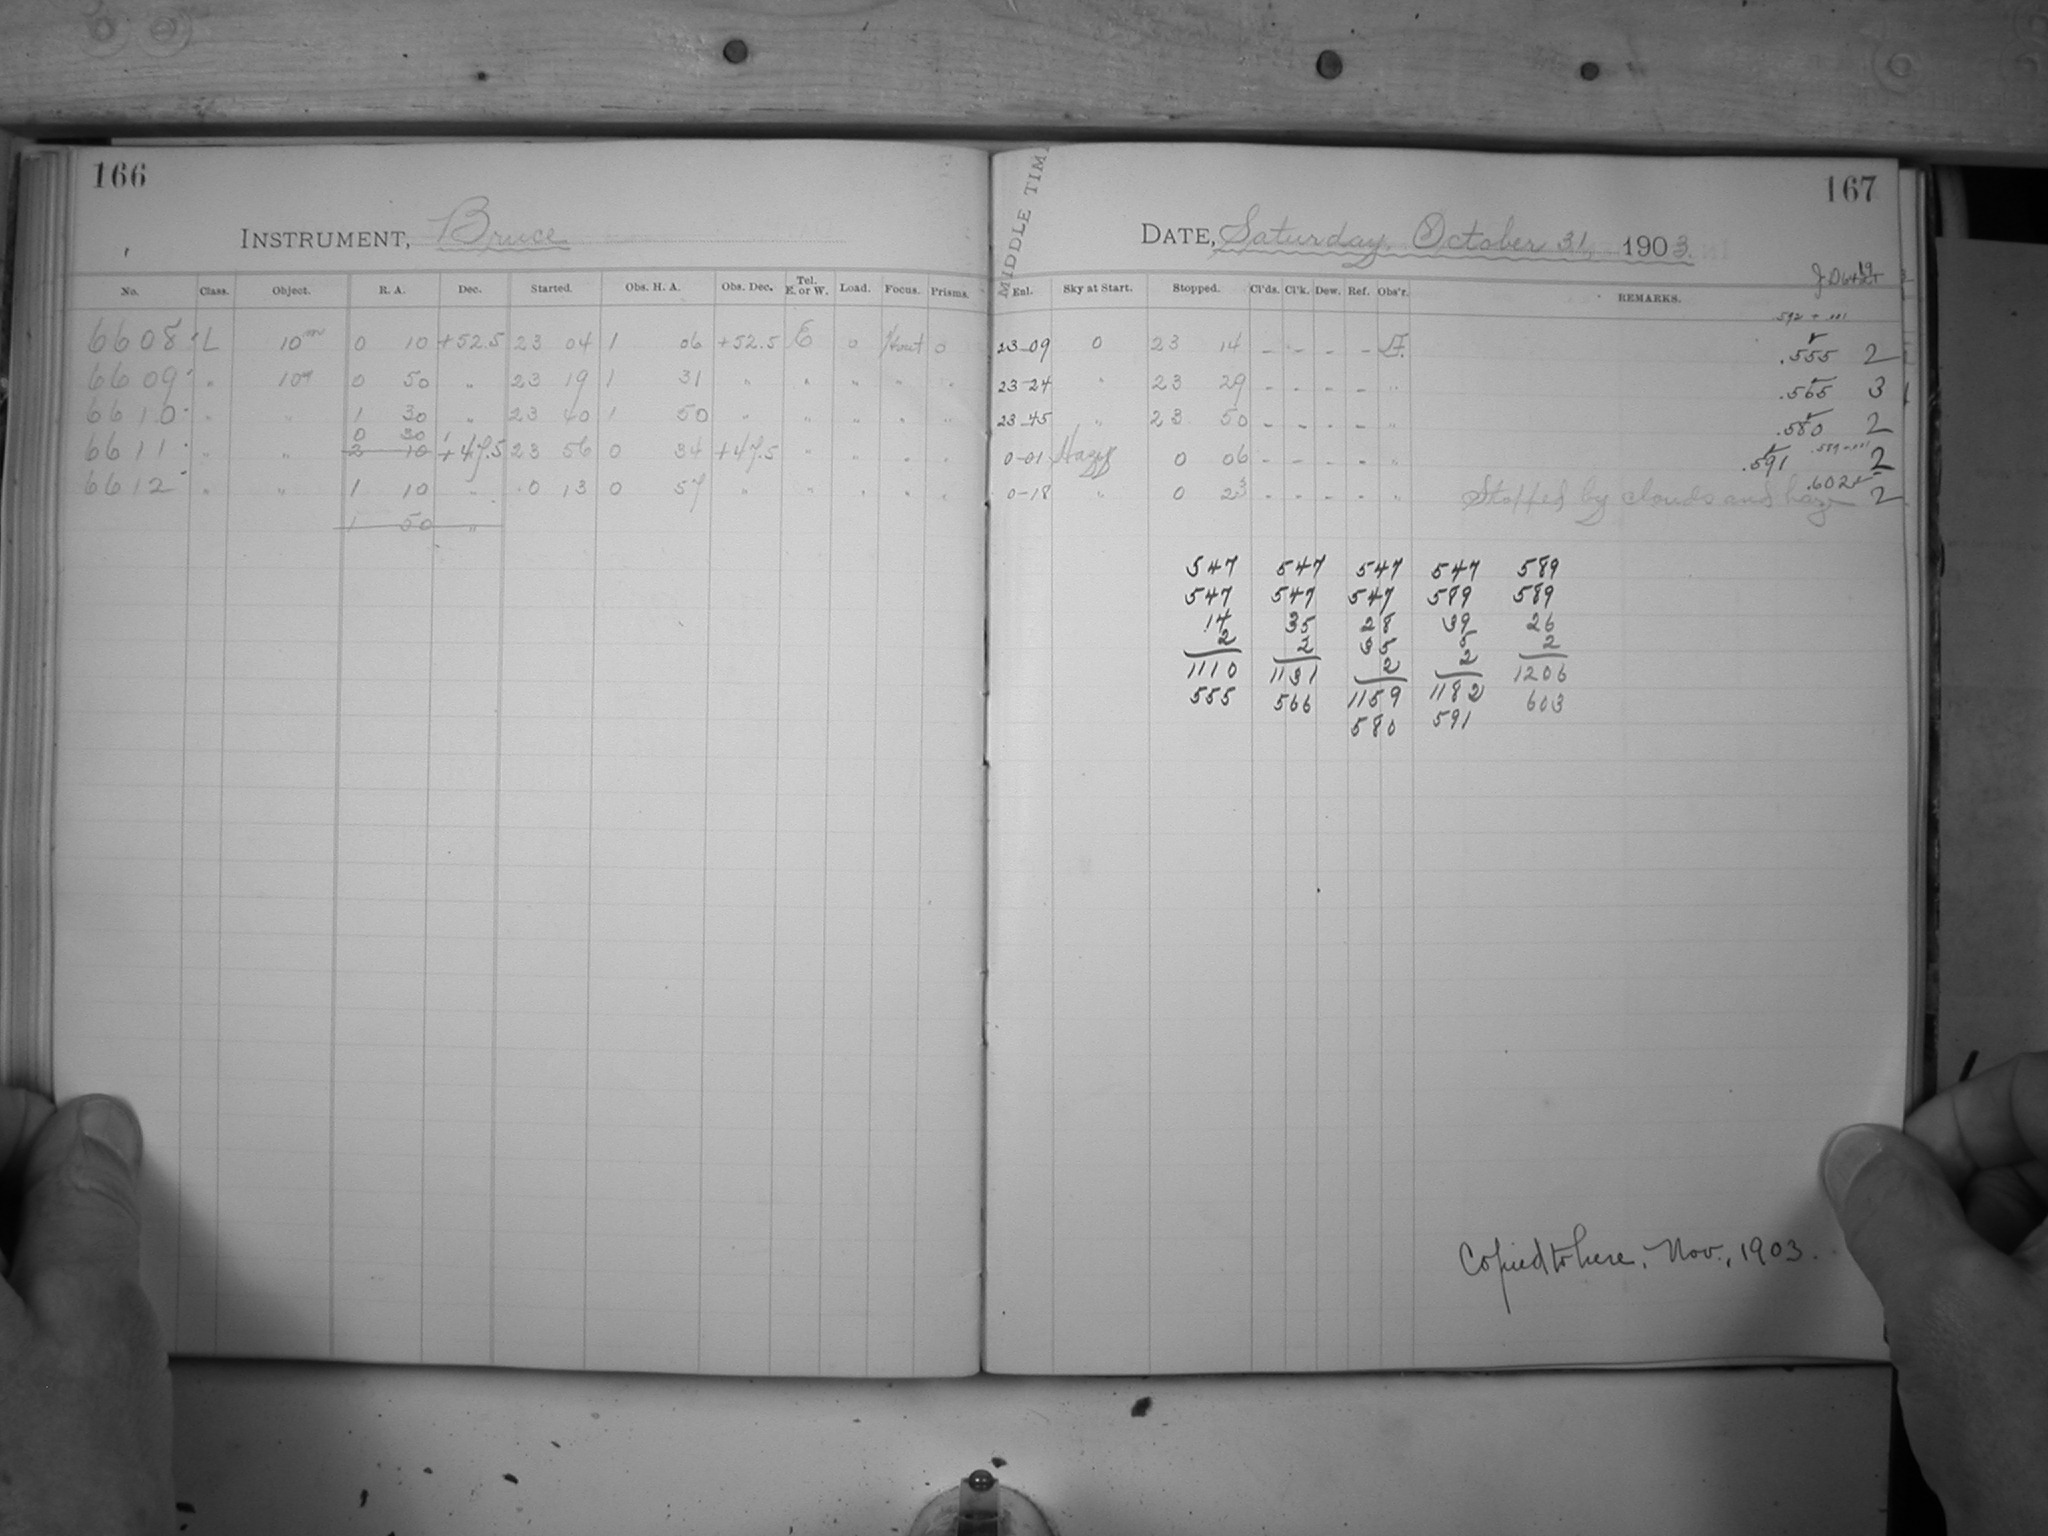 166
INSTRUMENT, Bruce
No. Class. Object. R. A. Dec. Started. Obs. H. A. Obs. Dec. Tel. E. or W. Load. Focus. Prisms.
6608 L 10m 0 10 +52.5 23 04 1 06 +52.5 E 0 0
6609 " 10m 0 50 " 23 19 1 31 " " " " "
6610 " " 1 30 " 23 40 1 50 " " " " "
0 30
6611 " " 2 10 +47.5 23 56 0 34 +47.5 " " " "
6612 " " 1 10 " 0 13 0 57 " " " " "
1 50 "
167
MIDDLE TIM
DATE, Saturday, October 31, 1903.
Enl. Sky at Start. Stopped. Cl'ds. Cl'k. Dew. Ref. Obs'r. REMARKS.
.592 - .001
23-09 0 23 14 - - - - .555 2
23-24 " 23 29 - - - - " .565 3
23-45 " 23 50 - - - - " .580 2
0-01 Hazy 0 06 - - - - " .591 2
.602
0-18 " 0 23 - - - - " Stopped by clouds and haze 2
547 547 547 547 589
547 547 547 589 589
14 35 28 39 26
2 2 35 5 2
1110 1131 2 2 1206
555 566 1159 1182 603
580 591
Copied to here, Nov., 1903.